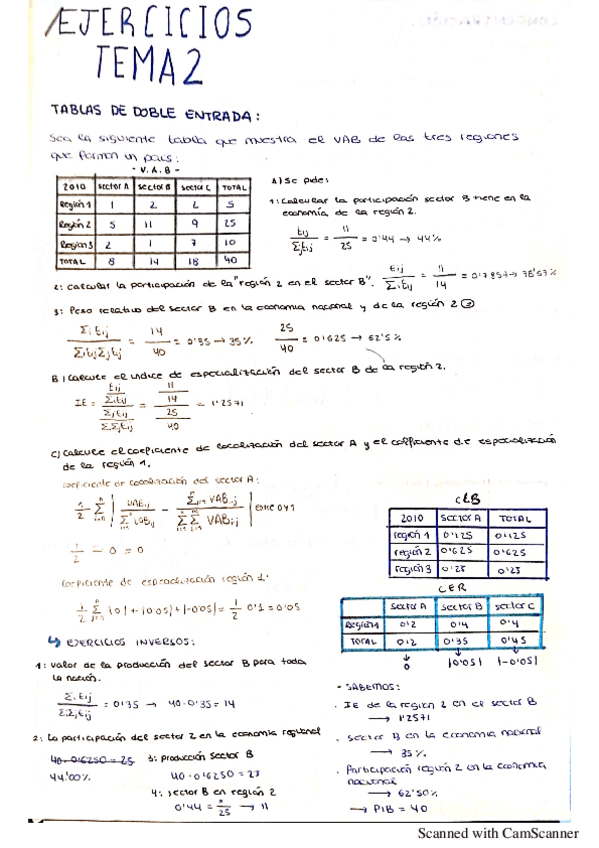 EJERCICIOS
TEMA 2
TABLAS DE DOBLE ENTRADA:
Sea la siguiente tabla que muestra el VAB de las tres regiones
que forman un país:
- V.A.B -
2010 sector A sector B sector C TOTAL
Región 1 1 2 2 5
Región 2 5 11 9 25
Región 3 2 1 7 10
TOTAL 8 14 18 40
A) Se pide:
1: Calcular la participación sector B tiene en la
economía de la región 2.
tij / Σj tij = 11 / 25 = 0'44 → 44%
2: calcular la participación de la "región 2 en el sector B". tij / Σi tij = 11 / 14 = 0'7857 → 78'57%
3: Peso relativo del sector B en la economía nacional y de la región 2
Σi tij / Σi tij Σj tij = 14 / 40 = 0'35 → 35% 25 / 40 = 0'625 → 62'5%
B) Calcule el índice de especialización del sector B de la región 2.
IE = = 11 / 14 / 25 / 40 = 1'2571
C) Calcule el coeficiente de localización del sector A y el coeficiente de especialización
de la región 1.
coeficiente de localización del sector A:
entre 0 y 1
1/2 - 0 = 0
Coeficiente de especialización región 1:
1/2 Σ |0| + |0'05| + |-0'05| = 1/2 0'1 = 0'05
2010 SECTOR A TOTAL
región 1 0'125 0'125
región 2 0'625 0'625
región 3 0'25 0'25
CER
sector A sector B sector C
Región 1 0'2 0'4 0'4
TOTAL 0'2 0'35 0'45
0 |0'05| |-0'05|
EJERCICIOS INVERSOS:
1: Valor de la producción del sector B para toda
la nación.
= 0'35 → 40·0'35 = 14
2: La participación del sector 2 en la economía regional
40·0'6250 = 25
44'00%
3: producción sector B
40·0'6250 = 25
4: sector B en región 2
0'44 = x / 25 → 11
- SABEMOS:
. IE de la región 2 en el sector B
→ 1'2571
. sector B en la economía nacional
→ 35%
. Participación región 2 en la economía
nacional
→ 62'50%
→ PIB = 40
Scanned with CamScanner